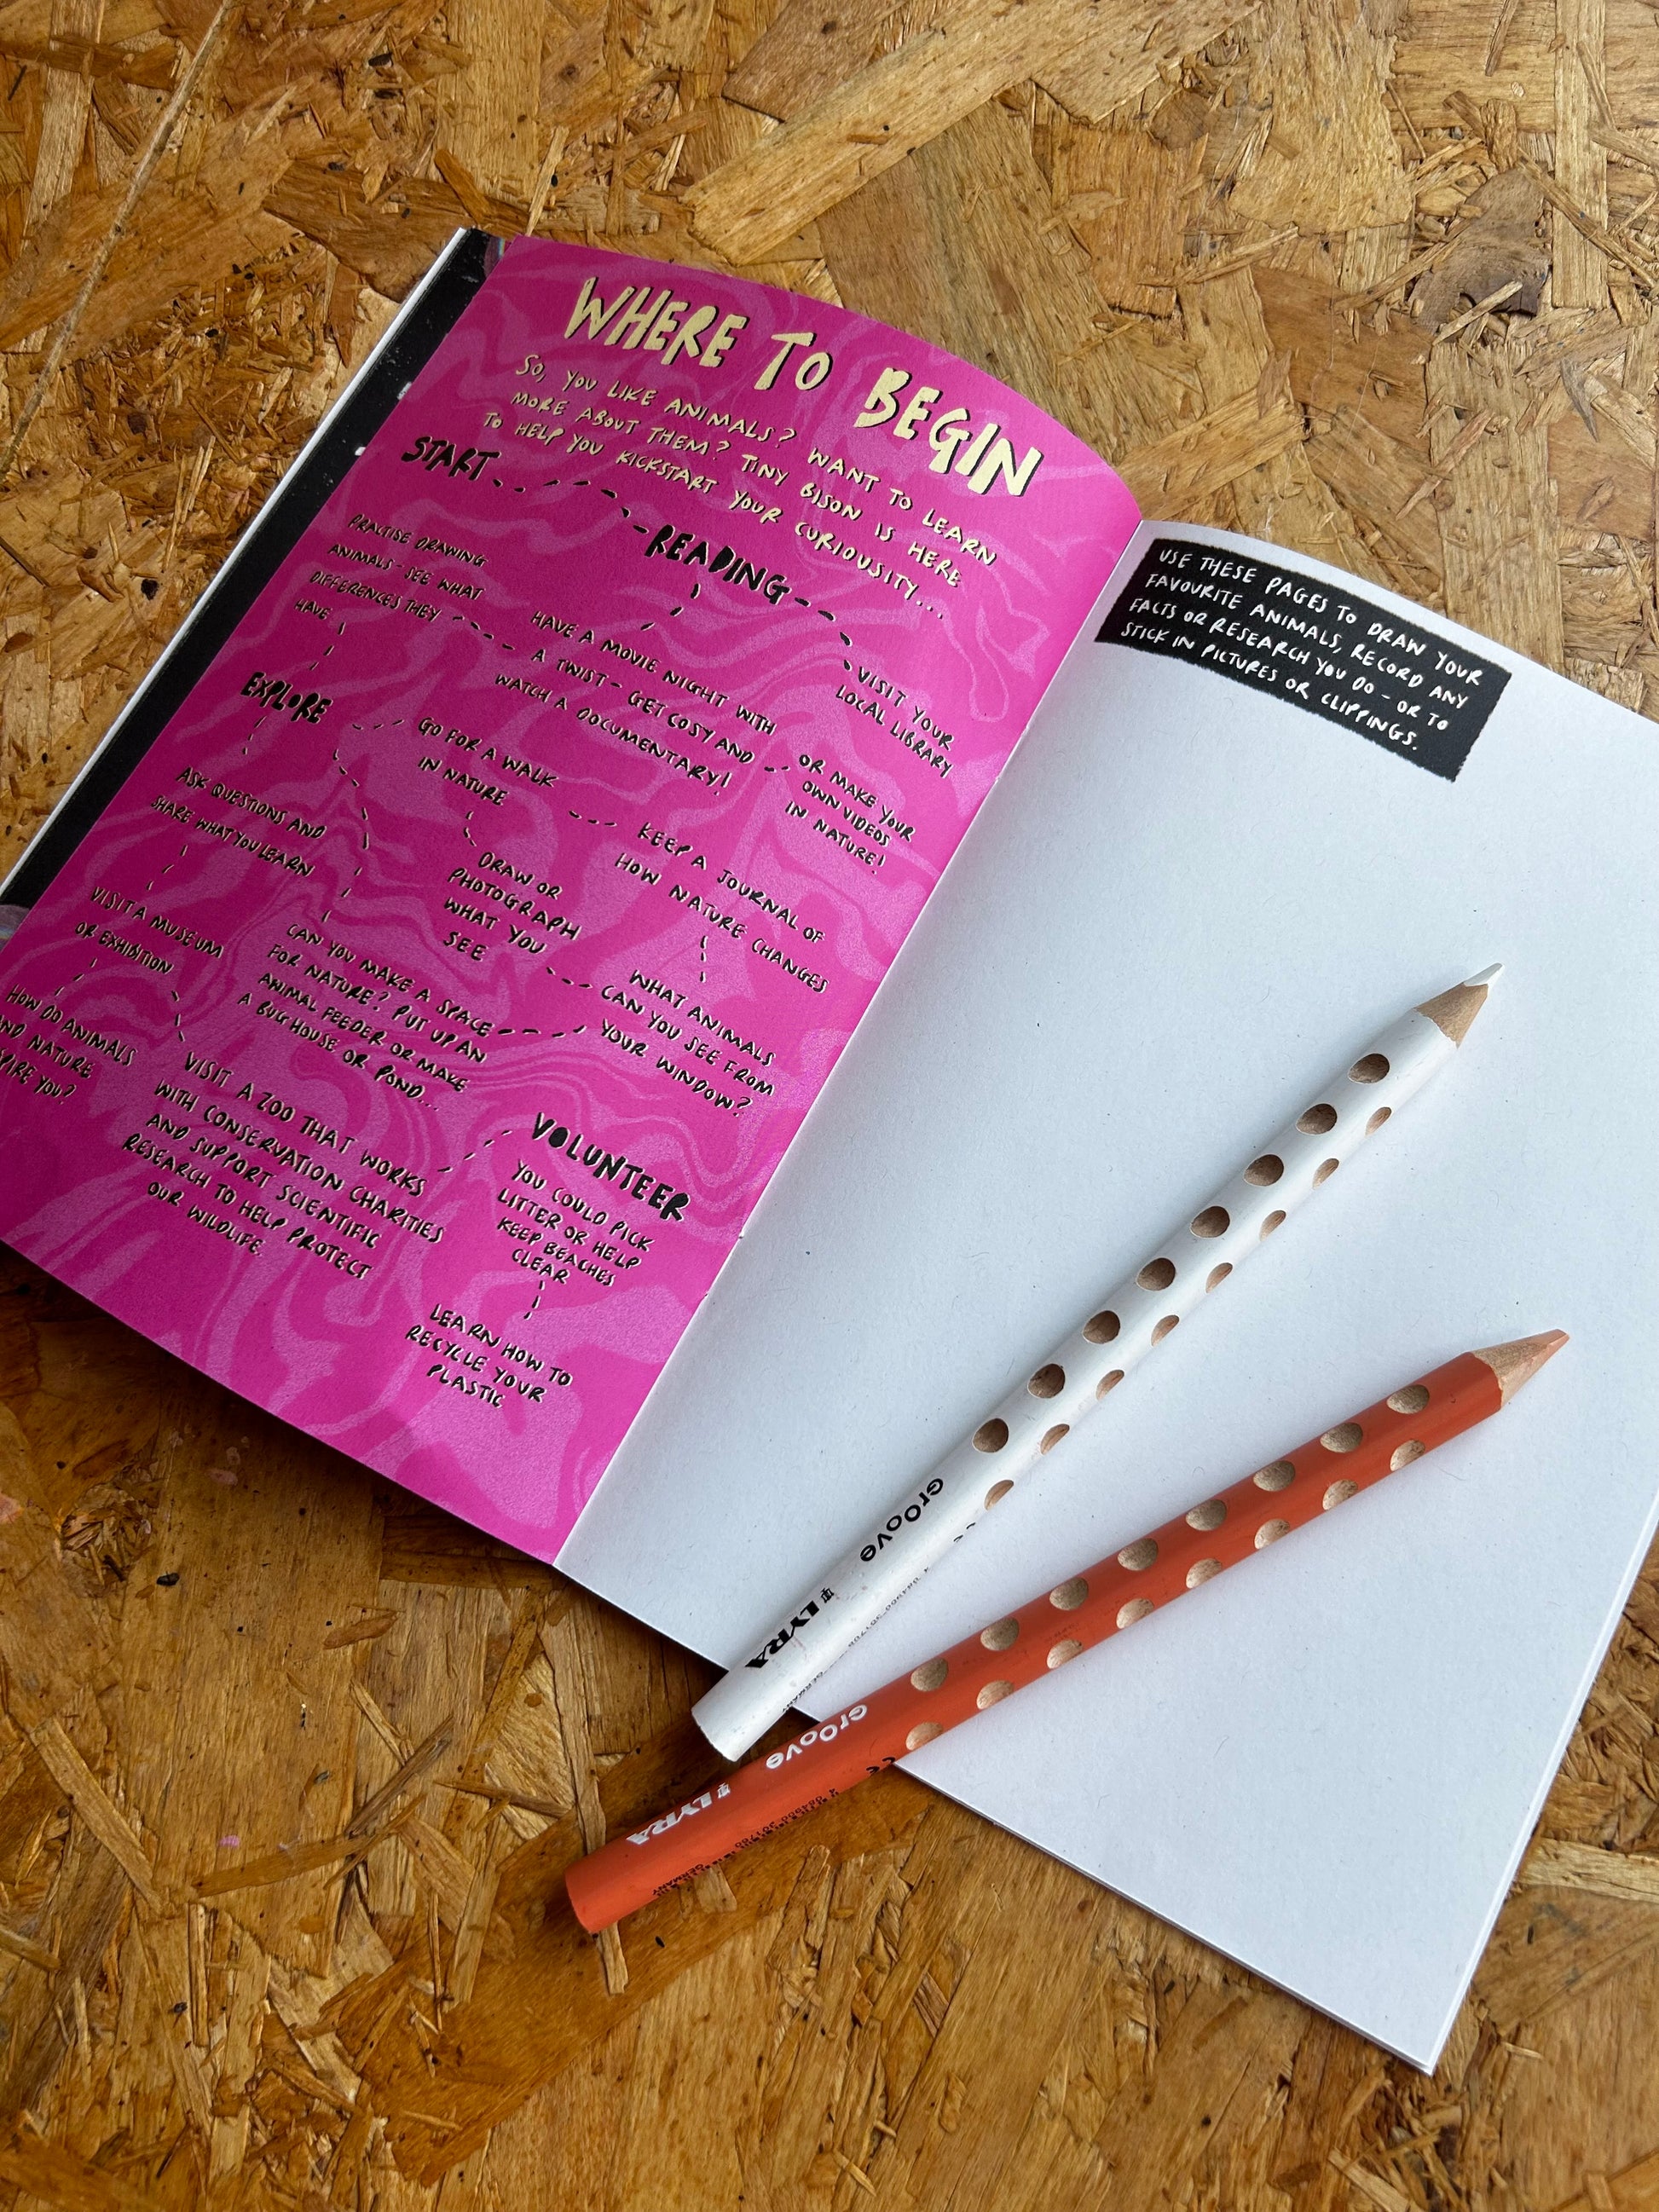 WHERE TO BEGIN
SO, YOU LIKE ANIMALS? WANT TO LEARN
MORE ABOUT THEM? TINY BISON IS HERE
TO HELP YOU KICKSTART YOUR CURIOUSITY...
START
READING
PRACTISE DRAWING
ANIMALS - SEE WHAT
DIFFERENCES THEY
HAVE
HAVE A MOVIE NIGHT WITH
A TWIST - GET COSY AND
WATCH A DOCUMENTARY!
VISIT YOUR
LOCAL LIBRARY
OR MAKE YOUR
OWN VIDEOS
IN NATURE!
EXPLORE
GO FOR A WALK
IN NATURE
KEEP A JOURNAL OF
HOW NATURE CHANGES
ASK QUESTIONS AND
SHARE WHAT YOU LEARN
DRAW OR
PHOTOGRAPH
WHAT YOU
SEE
VISIT A MUSEUM
OR EXHIBITION
CAN YOU MAKE A SPACE
FOR NATURE? PUT UP AN
ANIMAL FEEDER OR MAKE
A BUG HOUSE OR POND...
WHAT ANIMALS
CAN YOU SEE FROM
YOUR WINDOW?
HOW DO ANIMALS
AND NATURE
YOU?
VISIT A ZOO THAT WORKS
WITH CONSERVATION CHARITIES
AND SUPPORT SCIENTIFIC
RESEARCH TO HELP PROTECT
OUR WILDLIFE.
VOLUNTEER
YOU COULD PICK
LITTER OR HELP
KEEP BEACHES
CLEAR
LEARN HOW TO
RECYCLE YOUR
PLASTIC
USE THESE PAGES TO DRAW YOUR
FAVOURITE ANIMALS, RECORD ANY
FACTS OR RESEARCH YOU DO - OR TO
STICK IN PICTURES OR CLIPPINGS.
GrOOve
LYRA
GERMANY
GrOOve
LYRA
GERMANY